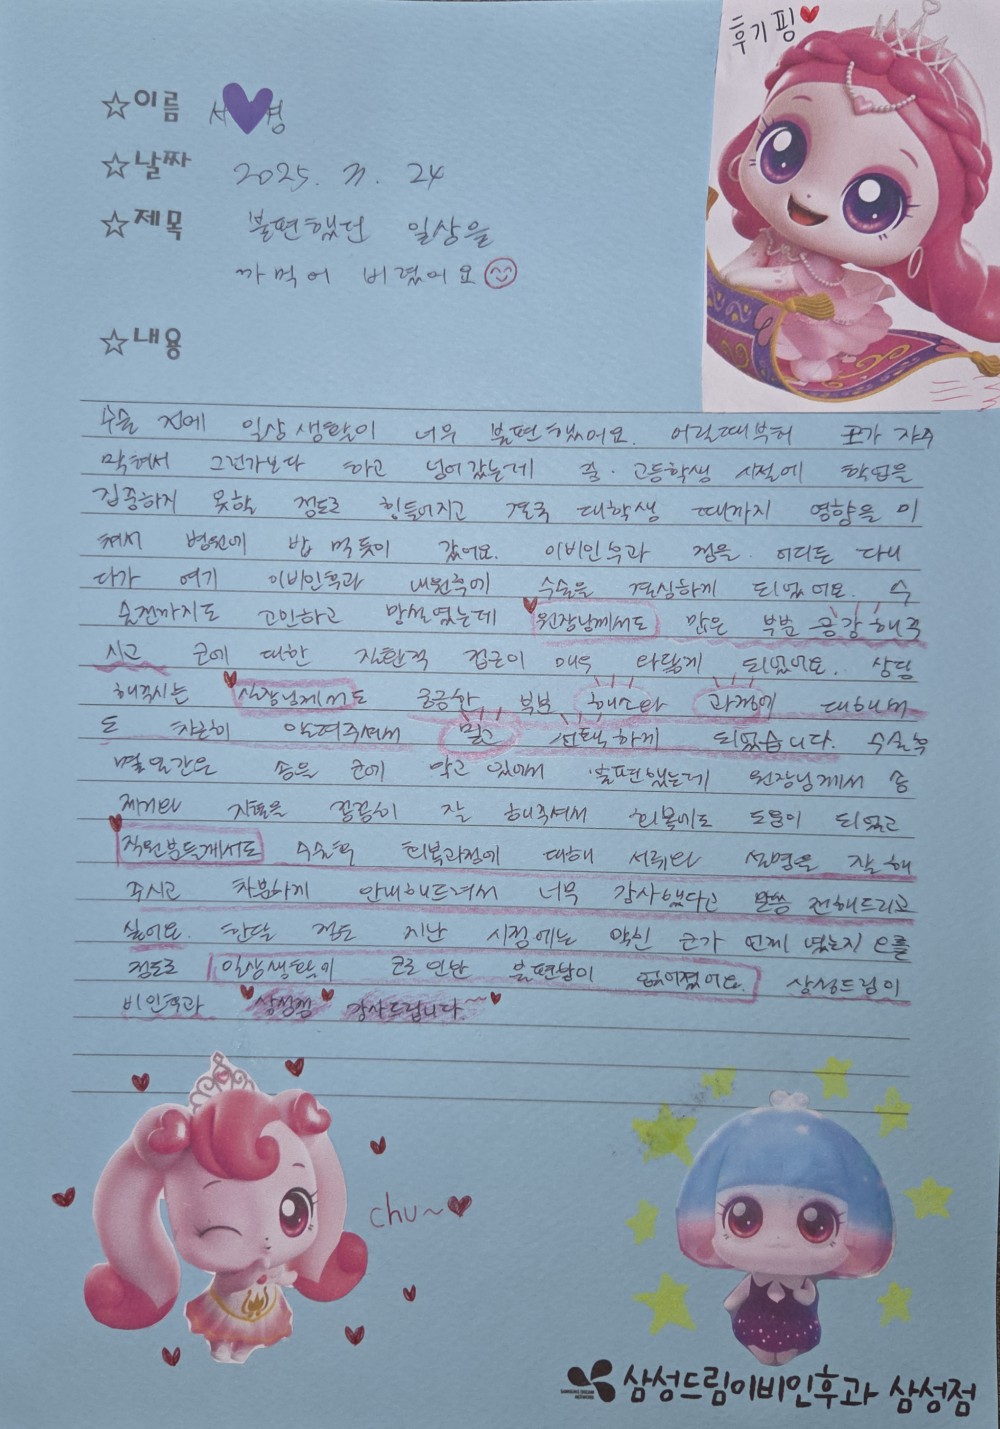 후기핑
☆이름 서 영
☆날짜 2025. 11. 24
☆제목 불편했던 일상을
까먹어 버렸어요
☆내용
수술 전에 일상생활이 너무 불편했어요. 어릴때부터 코가 자주
막혀서 그런가보다 하고 넘어갔는데 중·고등학생 시절에 학업을
집중하지 못할 정도로 힘들어지고 결국 대학생 때까지 영향을 미
쳐서 병원에 밥 먹듯이 갔어요. 이비인후과 점을 어디든 다니
다가 여기 이비인후과 내원후에 수술을 결심하게 되었어요. 수
술전까지도 고민하고 망설였는데 원장님께서도 많은 부분 공감해주
시고 코에 대한 직접적 접근이 매우 와닿게 되었어요. 상담
해주시는 실장님께서도 궁금한 부분 해소와 과정에 대해서
도 차근히 알려주셔서 믿고 선택하게 되었습니다. 수술후
몇일간은 솜을 코에 막고 있어서 불편했는데 원장님께서 솜
제거와 치료를 꼼꼼히 잘 해주셔서 회복에도 도움이 되었고
직원분들께서도 수술후 회복과정에 대해 서류와 설명을 잘 해
주시고 차분하게 안내해드려서 너무 감사했다고 말씀 전해드리고
싶어요. 한달 정도 지난 시점에는 막힌 코가 언제 였는지 모를
정도로 일상생활에 코로 인한 불편함이 없어졌어요. 삼성드림이
비인후과 삼성점 감사드립니다~
chu~
SAMSUNG DREAM
NETWORK
삼성드림이비인후과 삼성점